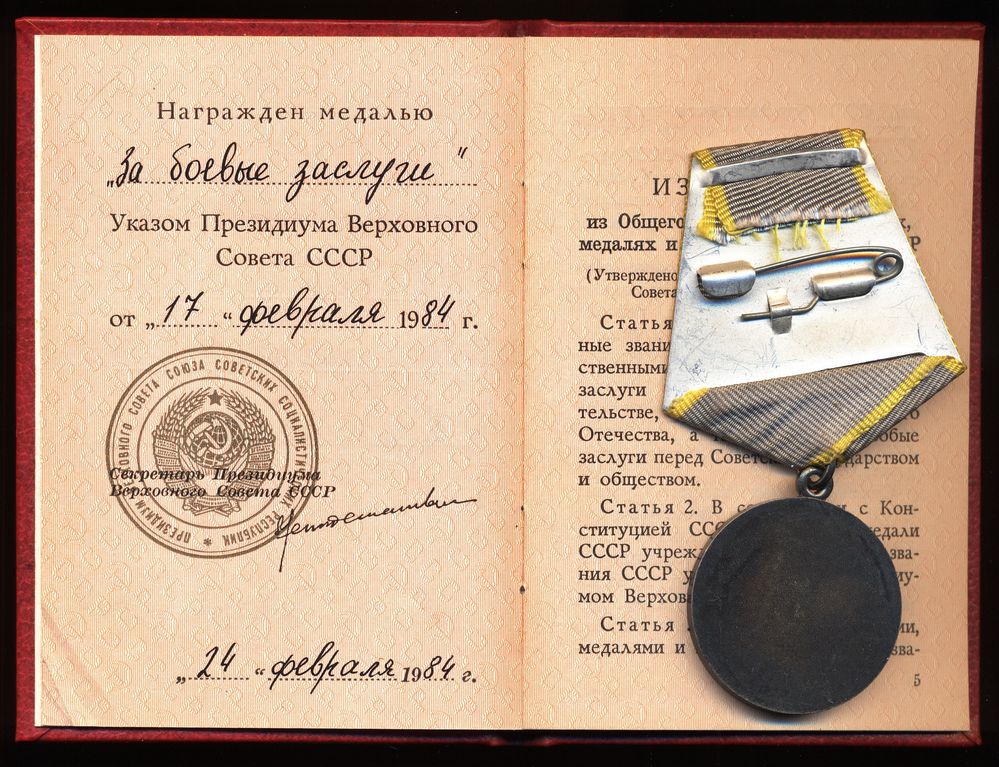 Награжден медалью
„За боевые заслуги"
Указом Президиума Верховного
Совета СССР
от „17" февраля 1984 г.
ПРЕЗИДИУМ ВЕРХОВНОГО СОВЕТА СОЮЗА СОВЕТСКИХ СОЦИАЛИСТИЧЕСКИХ РЕСПУБЛИК *
Секретарь Президиума
Верховного Совета СССР
„24" февраля 1984 г.
ИЗ
из Общего
медалях и
(Утверждено
Совета
Статья
ные
ственными
заслуги
тельстве,
Отечества, а
заслуги перед
и обществом.
Статья 2. В с Кон-
ституцией
СССР
ния СССР
мом
Статья
медалями и
5